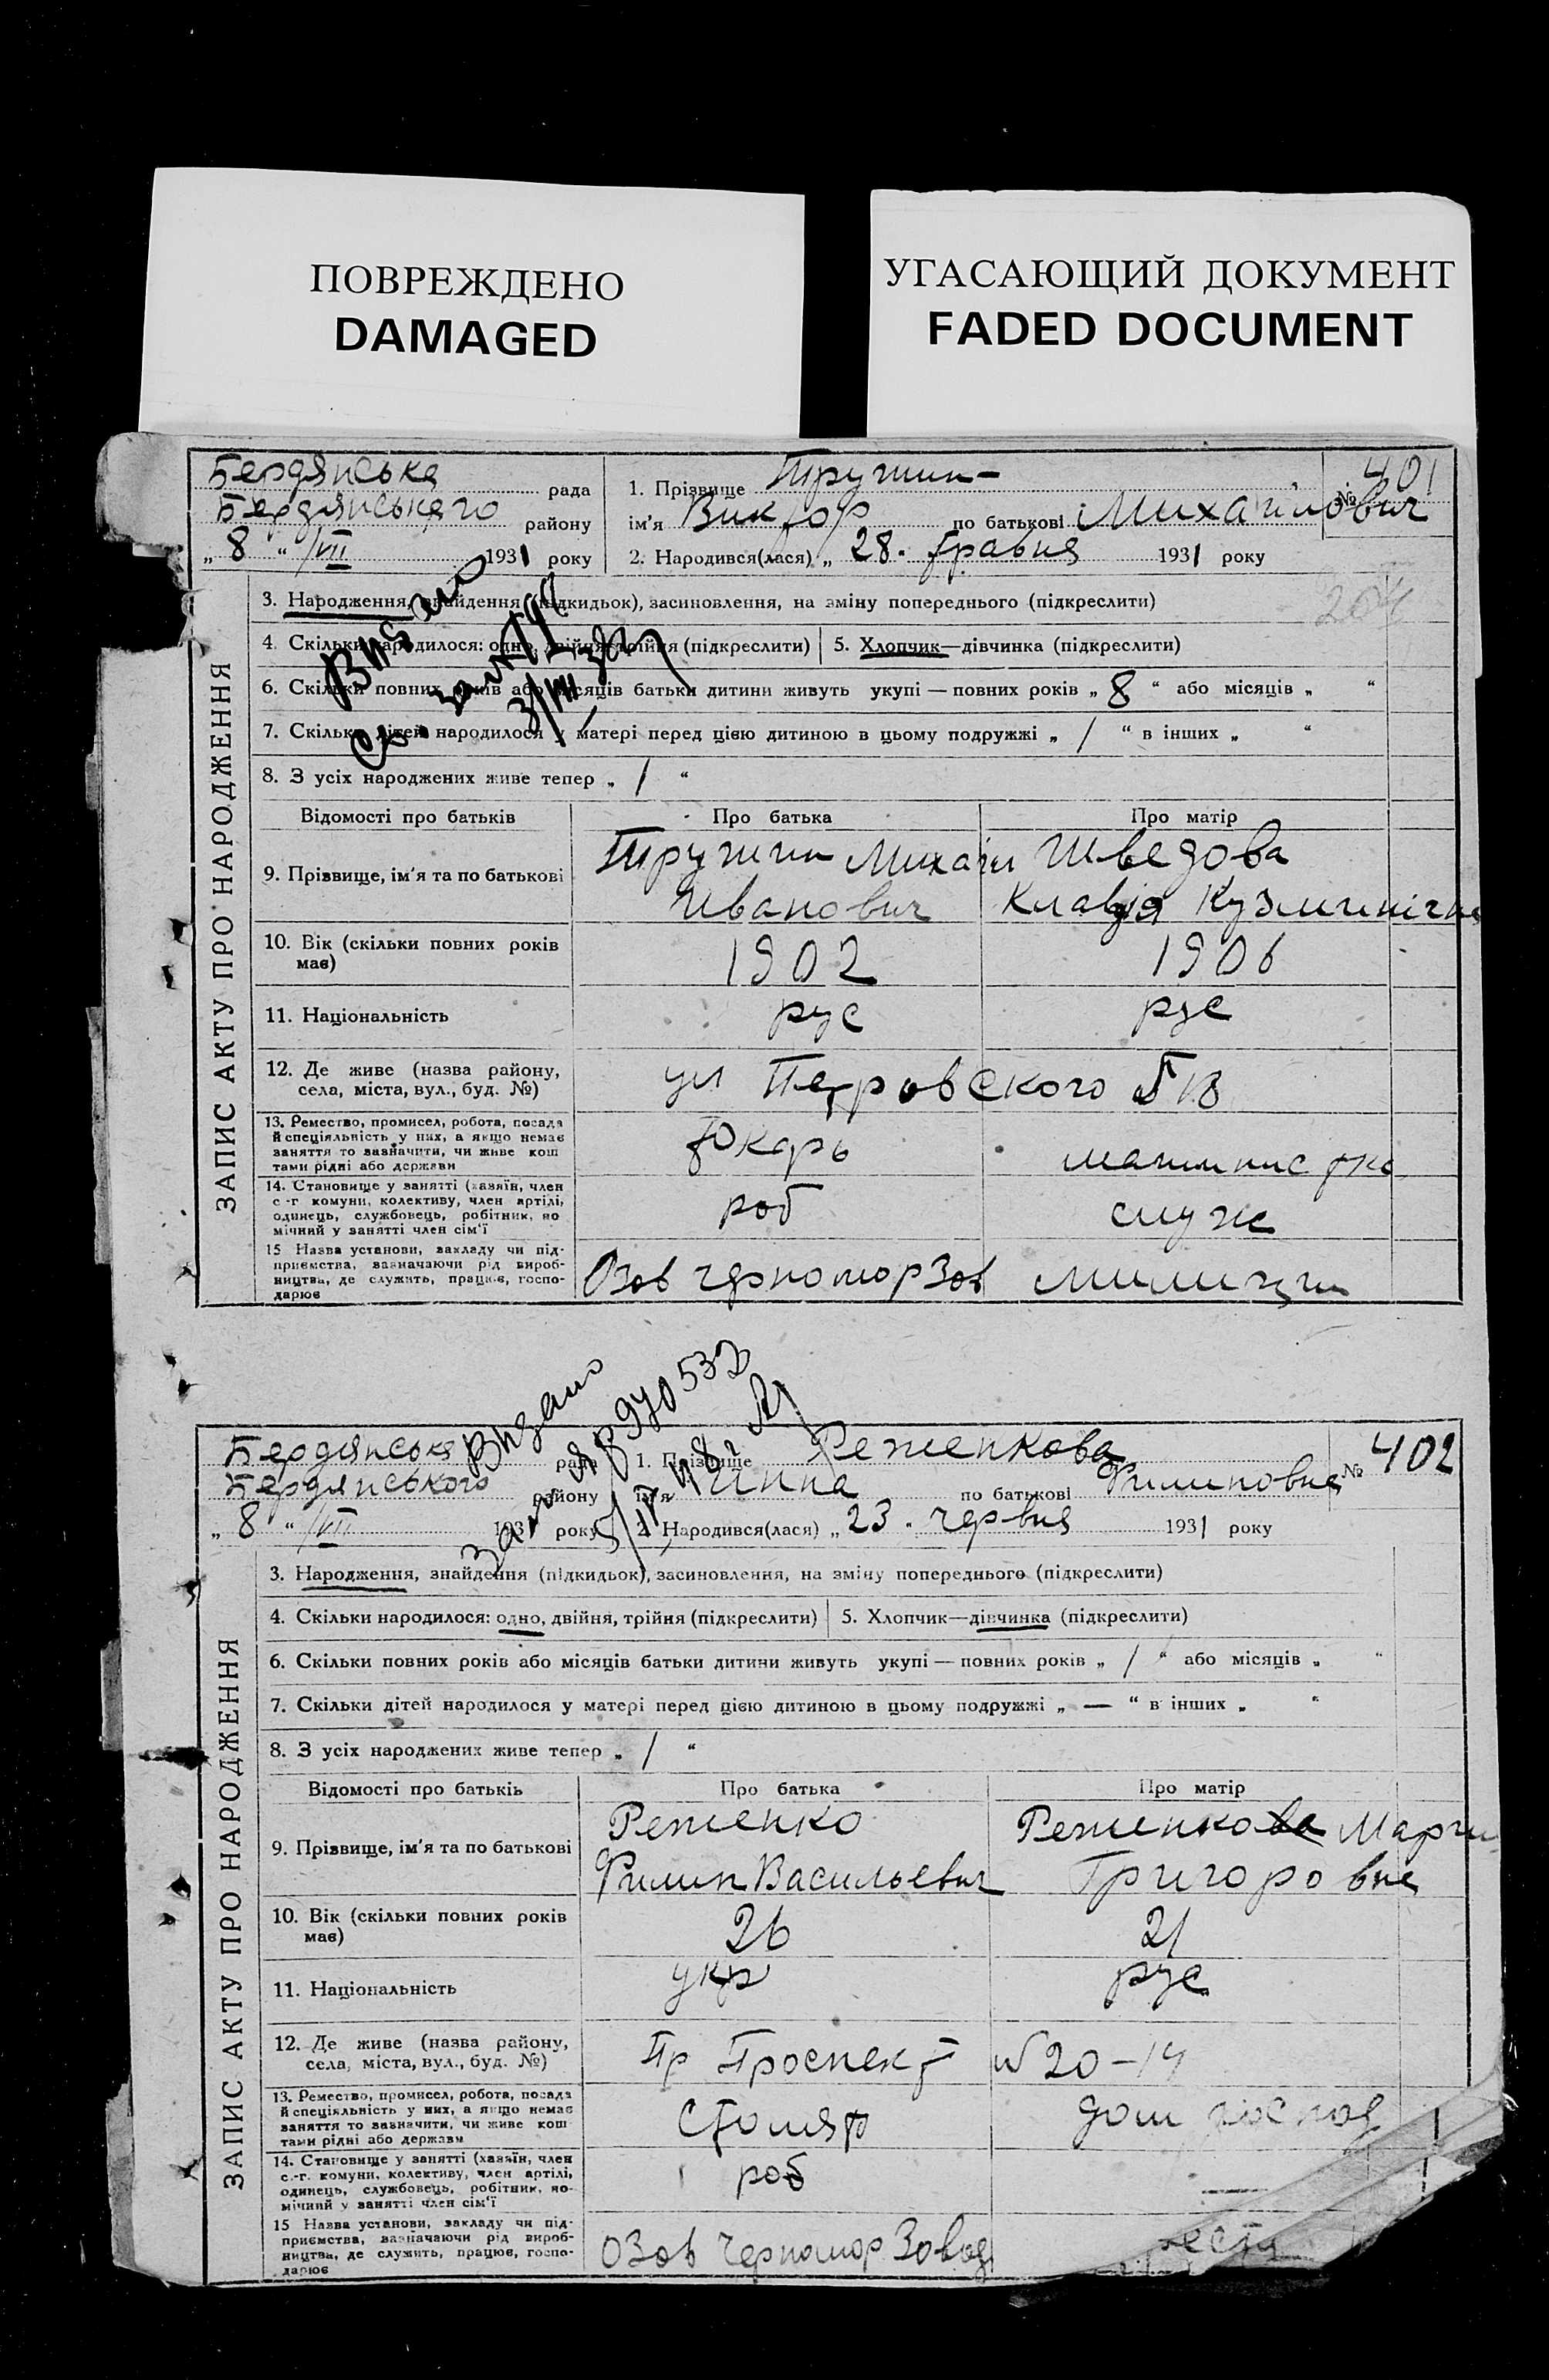 ПОВРЕЖДЕНО
DAMAGED
УГАСАЮЩИЙ ДОКУМЕНТ
FADED DOCUMENT
Бердянська рада
Бердянського району
„ 8 “ /VII 1931 року
1. Прізвище
№ 401
ім'я Виктор по батькові Михайлович
2. Народився(лася) „ 28. травня 1931 року
ЗАПИС АКТУ ПРО НАРОДЖЕННЯ
3. Народження, знайдення (підкидьок), засиновлення, на зміну попереднього (підкреслити)
4. Скільки народилося: одно, двійня, трійня (підкреслити) 5. Хлопчик—дівчинка (підкреслити)
6. Скільки повних років або місяців батьки дитини живуть укупі — повних років „ 8 “ або місяців „ “
7. Скільки дітей народилося у матері перед цією дитиною в цьому подружжі „ / “ в інших „ “
8. З усіх народжених живе тепер „ / “
Відомості про батьків Про батька Про матір
9. Прізвище, ім'я та по батькові
Михаил Шведова
Иванович Клавдія
10. Вік (скільки повних років має) 1902 1906
11. Національність рус рус
12. Де живе (назва району, села, міста, вул., буд. №) ул Петровского
13. Ремество, промисел, робота, посада
й спеціяльність у них, а якщо немає
заняття то зазначити, чи живе кош
тами рідні або держави
Токарь машинистка
14. Становище у занятті (хазяїн, член
с.-г комуни, колективу, член артілі,
одинець, службовець, робітник, по
мічний у занятті член сім'ї
роб служ
15 Назва установи, закладу чи під-
приємства, зазначаючи рід вироб-
ництва, де служить, працює, госпо-
дарює
Озов черномор Зов милиции
Видано
Бердянська рада
Бердянського району
„ 8 “ /VII 1931 року
1. Прізвище Реженкова
№ 402
ім'я Инна по батькові Филиповна
2. Народився(лася) „ 23. червня 1931 року
ЗАПИС АКТУ ПРО НАРОДЖЕННЯ
3. Народження, знайдення (підкидьок), засиновлення, на зміну попереднього (підкреслити)
4. Скільки народилося: одно, двійня, трійня (підкреслити) 5. Хлопчик—дівчинка (підкреслити)
6. Скільки повних років або місяців батьки дитини живуть укупі — повних років „ / “ або місяців „ “
7. Скільки дітей народилося у матері перед цією дитиною в цьому подружжі „ — “ в інших „ “
8. З усіх народжених живе тепер „ / “
Відомості про батьків Про батька Про матір
9. Прізвище, ім'я та по батькові
Реженко Реженкова
Филип Васильевич Григоровна
10. Вік (скільки повних років має) 26 21
11. Національність укр рус
12. Де живе (назва району, села, міста, вул., буд. №) Пр Проспект № 20–14
13. Ремество, промисел, робота, посада
й спеціяльність у них, а якщо немає
заняття то зазначити, чи живе кош
тами рідні або держави
Столяр дом господ
14. Становище у занятті (хазяїн, член
с.-г. комуни, колективу, член артілі,
одинець, службовець, робітник, по-
мічний у занятті член сім'ї
роб —
15 Назва установи, закладу чи під-
приємства, зазначаючи рід вироб-
ництва, де служить, працює, госпо-
дарює
Озов Черномор Завод